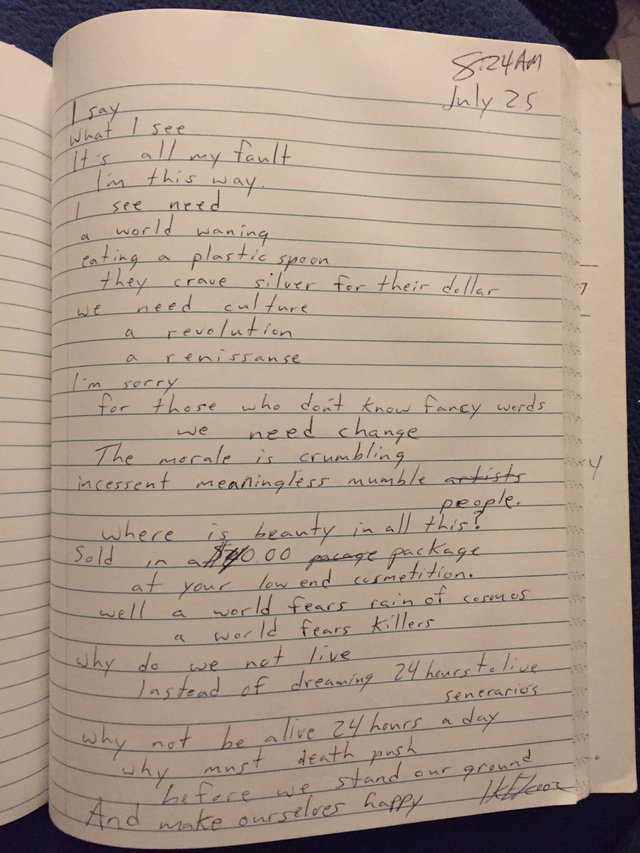 8:24AM
July 25
I say
what I see
It's all my fault
I'm this way.
I see need
a world waning
eating a plastic spoon
they crave silver for their dollar
we need culture
a revolution
a renissanse
I'm sorry
for those who don't know fancy words
we need change
The morale is crumbling
incessent meaningless mumble artists
people.
where is beauty in all this?
Sold in a $40.00 pacage package
at your low end cosmetition.
well a world fears rain of cosmos
a world fears killers
why do we not live
Instead of dreaming 24 hours to live
senerarios
why not be alive 24 hours a day
why must death push
before we stand our ground
And make ourselves happy